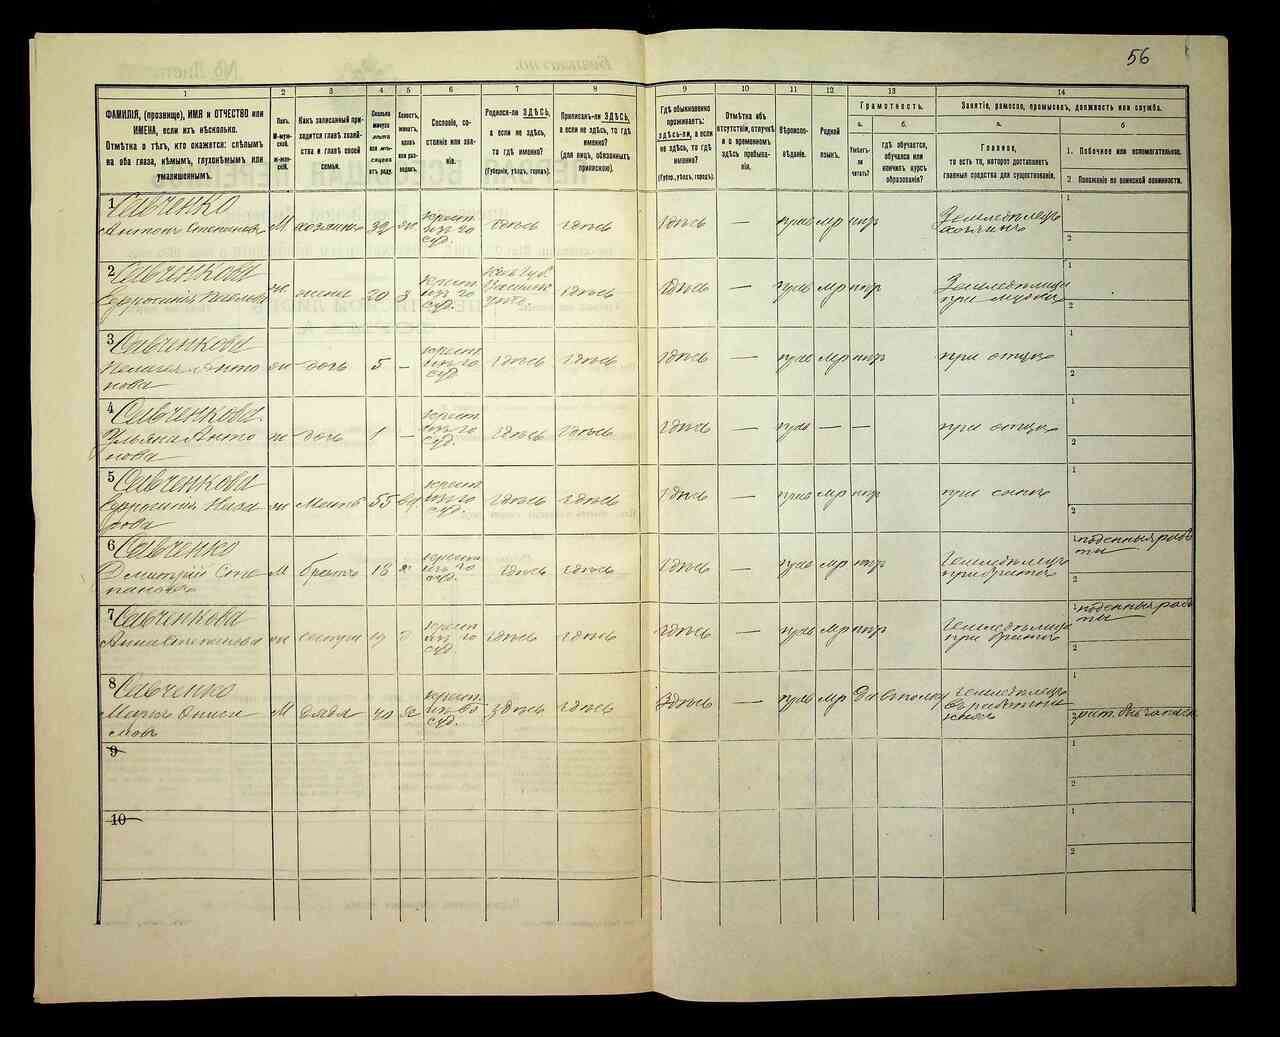 56
1 2 3 4 5 6 7 8 9 10 11 12 13 14
ФАМИЛІЯ, (прозвище), ИМЯ и ОТЧЕСТВО или
ИМЕНА, если ихъ нѣсколько.
Отмѣтка о тѣхъ, кто окажется: слѣпымъ
на оба глаза, нѣмымъ, глухонѣмымъ или
умалишеннымъ.
Полъ.
М-муж-
ской.
Ж-жен-
скій.
Какъ записанный при-
ходится главѣ хозяй-
ства и главѣ своей
семьи.
Сколько
минуло
лѣтъ
или мѣ-
сяцевъ
отъ роду.
Холостъ,
женатъ,
вдовъ
или раз-
веденъ.
Сословіе, со-
стояніе или зва-
ніе.
Родился-ли ЗДѢСЬ,
а если не здѣсь,
то гдѣ именно?
(Губернія, уѣздъ, городъ).
Приписанъ-ли ЗДѢСЬ,
а если не здѣсь, то гдѣ
именно?
(для лицъ, обязанныхъ
припискою).
Гдѣ обыкновенно
проживаетъ:
здѣсь-ли, а если
не здѣсь, то гдѣ
именно?
(Губер., уѣздъ, городъ).
Отмѣтка объ
отсутствіи, отлучкѣ
и о временномъ
здѣсь пребыва-
ніи.
Вѣроиспо-
вѣданіе.
Родной
языкъ.
Грамотность.
а.
Умѣетъ-
ли
читать?
б.
гдѣ обучается,
обучался или
кончилъ курсъ
образованія?
Занятіе, ремесло, промыселъ, должность или служба.
а.
Главное,
то есть то, которое доставляетъ
главныя средства для существованія.
б
1. Побочное или вспомогательное.
2 Положеніе по воинской повинности.
1 Савченко
Антонъ Степановъ М хозяинъ здѣсь здѣсь здѣсь — прав мр нѣт Земледѣлецъ
хозяинъ
1
2
2 Савченкова
Ефросинія жена 30 з здѣсь здѣсь — прав мр нѣт Земледѣлица
при мужѣ
1
2
3 Савченкова
Анто
нова ж дочь 5 — здѣсь здѣсь здѣсь — прав мр нѣт при отцѣ
1
2
4 Савченкова
Ульяна Анто
нова ж дочь 1 — здѣсь здѣсь здѣсь — прав — — при отцѣ
1
2
5 Савченкова
Ефросинія Наза
рова ж мать 55 вд. здѣсь здѣсь здѣсь — прав мр нѣт при сынѣ
1
2
6 Савченко
Дмитрій Сте
пановъ М братъ 18 х здѣсь здѣсь здѣсь — прав мр нѣт Земледѣлецъ
при братѣ
1 поденныя рабо
ты
2
7 Савченкова
Анна Степанова ж сестра здѣсь здѣсь здѣсь — прав мр нѣт Земледѣлица
при братѣ
1 поденныя рабо
ты
2
8 Савченко
Марко Ониси
мовъ М дядя здѣсь здѣсь здѣсь — прав мр да в полку земледѣлецъ
1
2
9
1
2
10
1
2